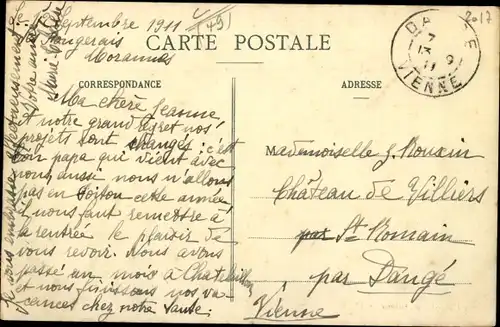 Septembre 1911
Morannes
2017
CARTE POSTALE
CORRESPONDANCE
ADRESSE
VIENNE
Ma chère Jeanne
et notre grand regret nos
projets sont changés : c'est
bon papa qui vient avec
nous aussi nous n'allons
pas en Poitou cette année
il nous faut remettre à
la rentrée le plaisir de
vous revoir. Nous avons
passé un mois à Chatelaillon
et nous finissons nos va-
cances chez notre tante.
Je vous embrasse affectueusement
Votre amie
Mademoiselle J. Rouxin
Château de Villiers
par St Romain
par Dangé
Vienne